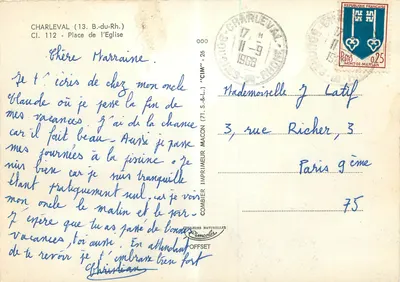 CHARLEVAL (13. B.-du-Rh.)
Cl. 112 - Place de l'Eglise
Chère Marraine
Je t'écris de chez mon oncle
Claude où je passe la fin de
mes vacances. J'ai de la chance
car il fait beau. Aussi je passe
mes journées à la piscine. Je
suis bien car je suis tranquille
étant pratiquement seul, car je vois
mon oncle le matin et le soir.
J'espère que tu as passé de bonnes
vacances, toi aussi. En attendant
de te revoir je t'embrasse bien fort
Christian
COMBIER IMPRIMEUR MACON (71. S.-&-L.) "CIM" - 26
OFFSET
CHARLEVAL
17 H
11-9
1966
17 H
11-9
0,25
Mademoiselle J Catif
3, rue Richer, 3
Paris 9ème
75